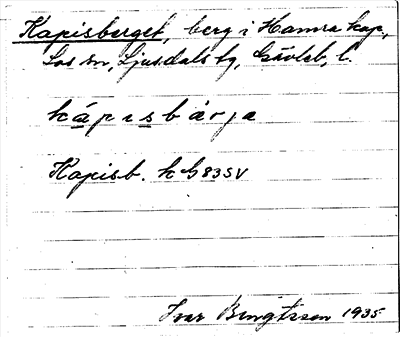 Kapisberget, berg i Hamra kap.,
Los sn, Ljusdals tg, Gävleb. l.
kápɪsbárja
Kapisb. kG83SV
Ivar Bengtsson 1935